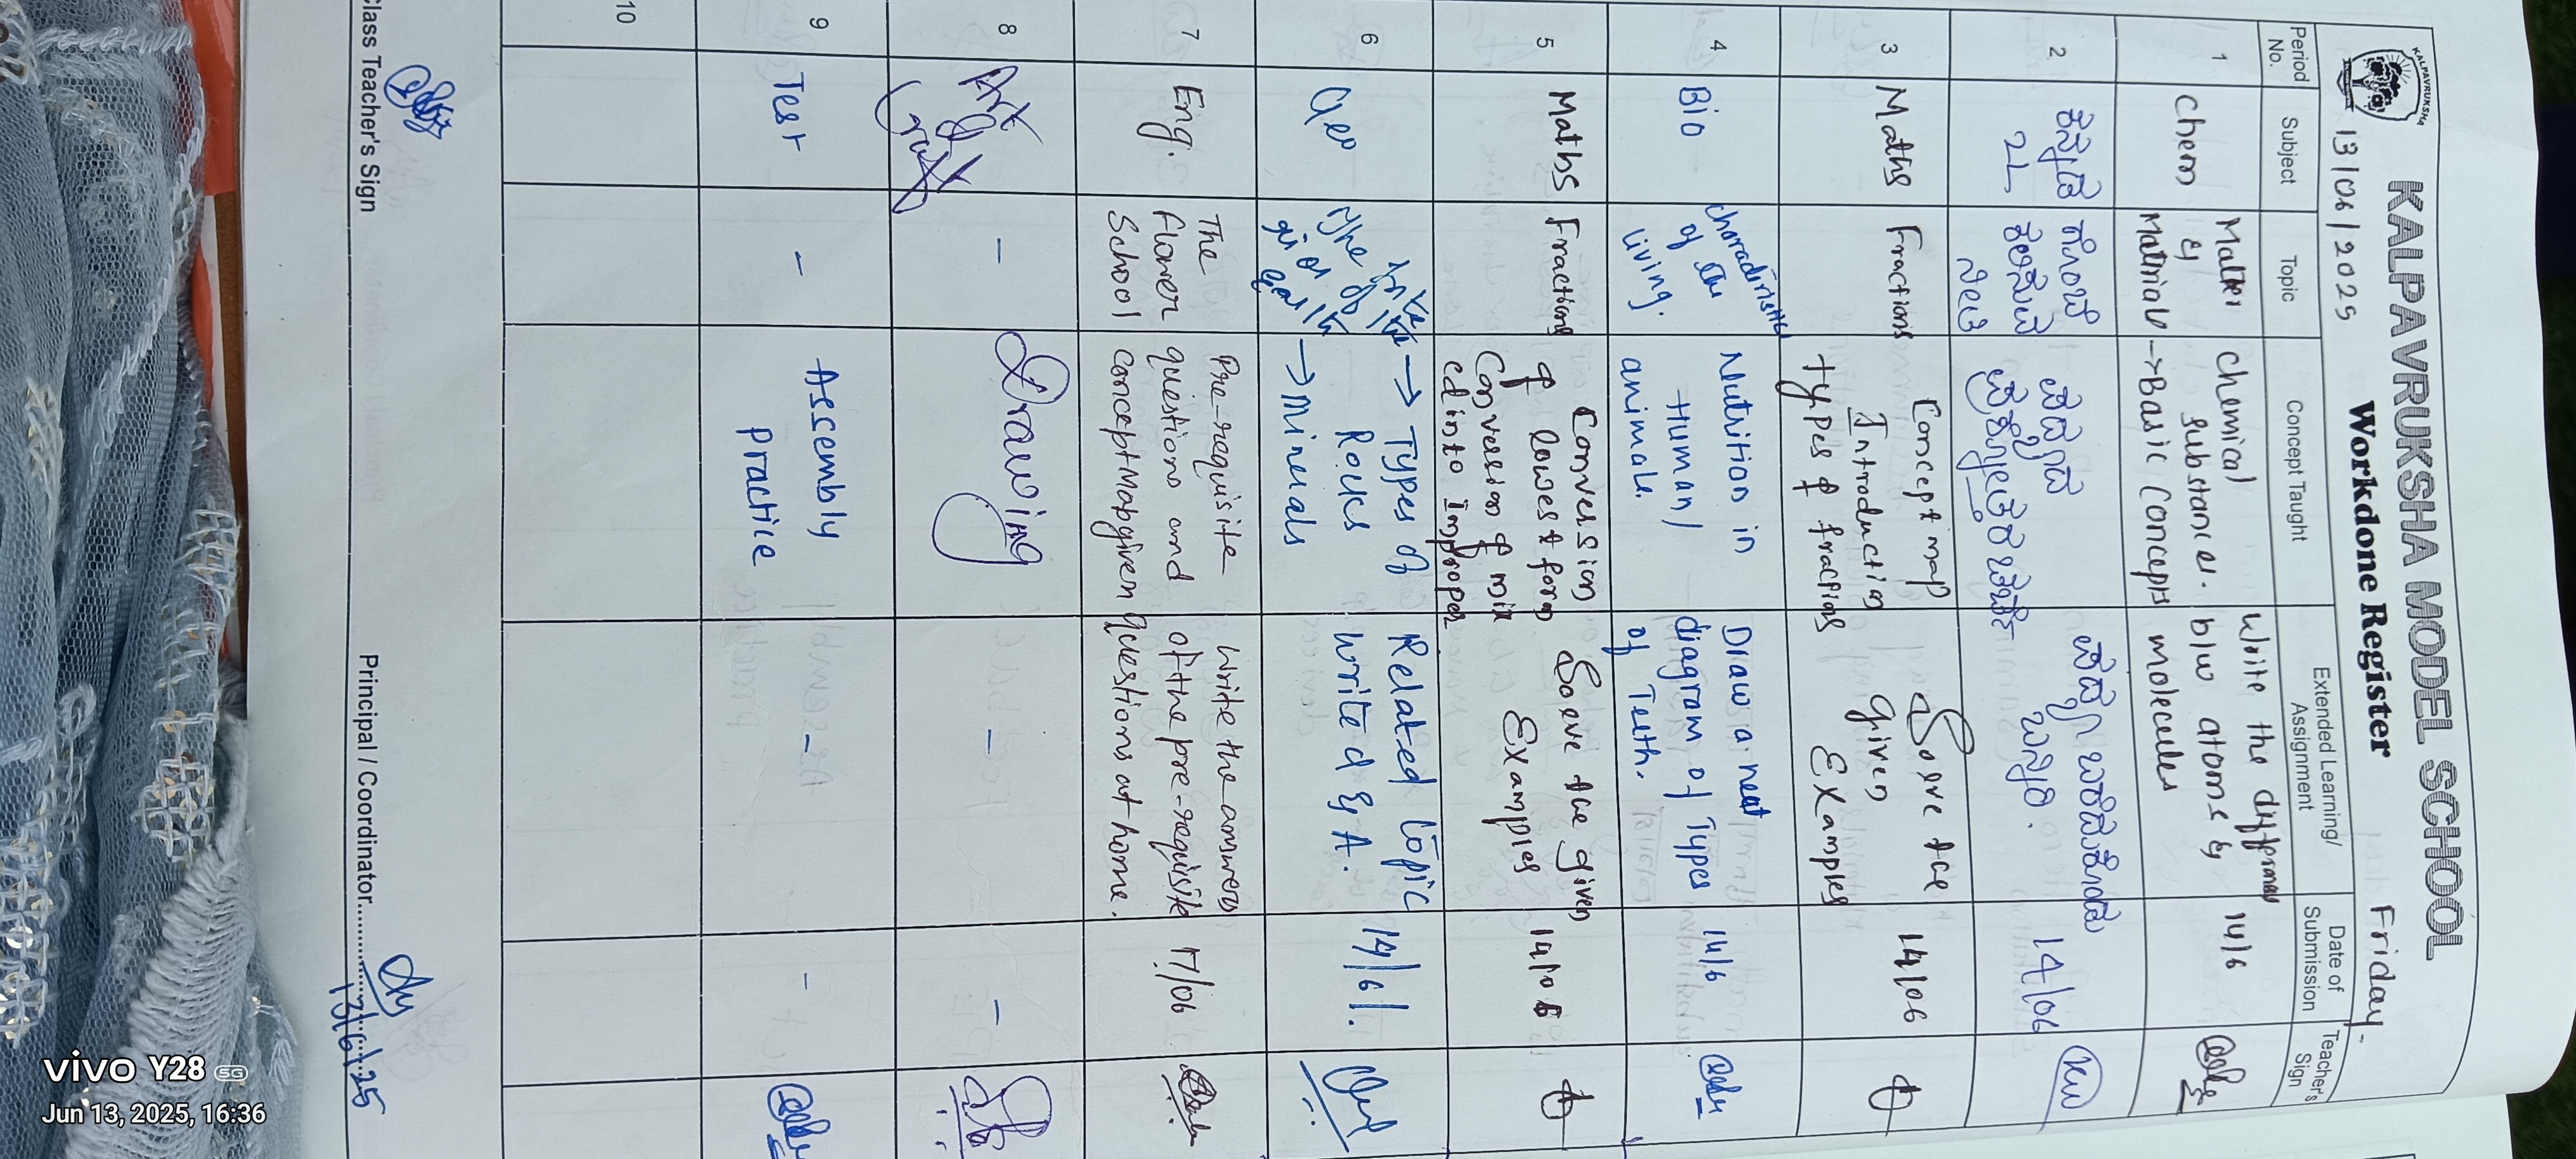 KALPAVRUKSHA
KALPAVRUKSHA MODEL SCHOOL
Workdone Register
13/06/2025
Friday.
Period No.
Subject
Topic
Concept Taught
Extended Learning/ Assignment
Date of Submission
Teacher's Sign
1
Chem
Matter
&
Matirials
chemical
substances.
→Basic Concepts
Write the
b/w atoms &
molecules
14/6
2
ಕನ್ನಡ
2L
14/06
3
Maths
Fractions
Concept map
Introduction
types of fractions
Solve the
given
Examples
14/06
4
Bio
of the
living.
Nutrition in
Human/
animals.
Draw a neat
diagram of Types
of Teeth.
14/6
5
Maths
Fractions
Conversion
of lowest form
Conversion of mix
ed into Improper
Solve the given
Examples
14/06
6
Geo
→ Types of
Rocks
→ Minerals
Related topic
write d & A.
14/6/.
7
Eng.
The
flower
School
Pre-requisite
questions and
concept Map given
Write the answers
of the pre-requisite
questions at home.
17/06
8
Art
&
Craft
-
Drawing
-
-
9
Test
-
Assembly
practice
-
-
10
Class Teacher's Sign
Principal / Coordinator
13/6/25
vivo Y28 5G
Jun 13, 2025, 16:36